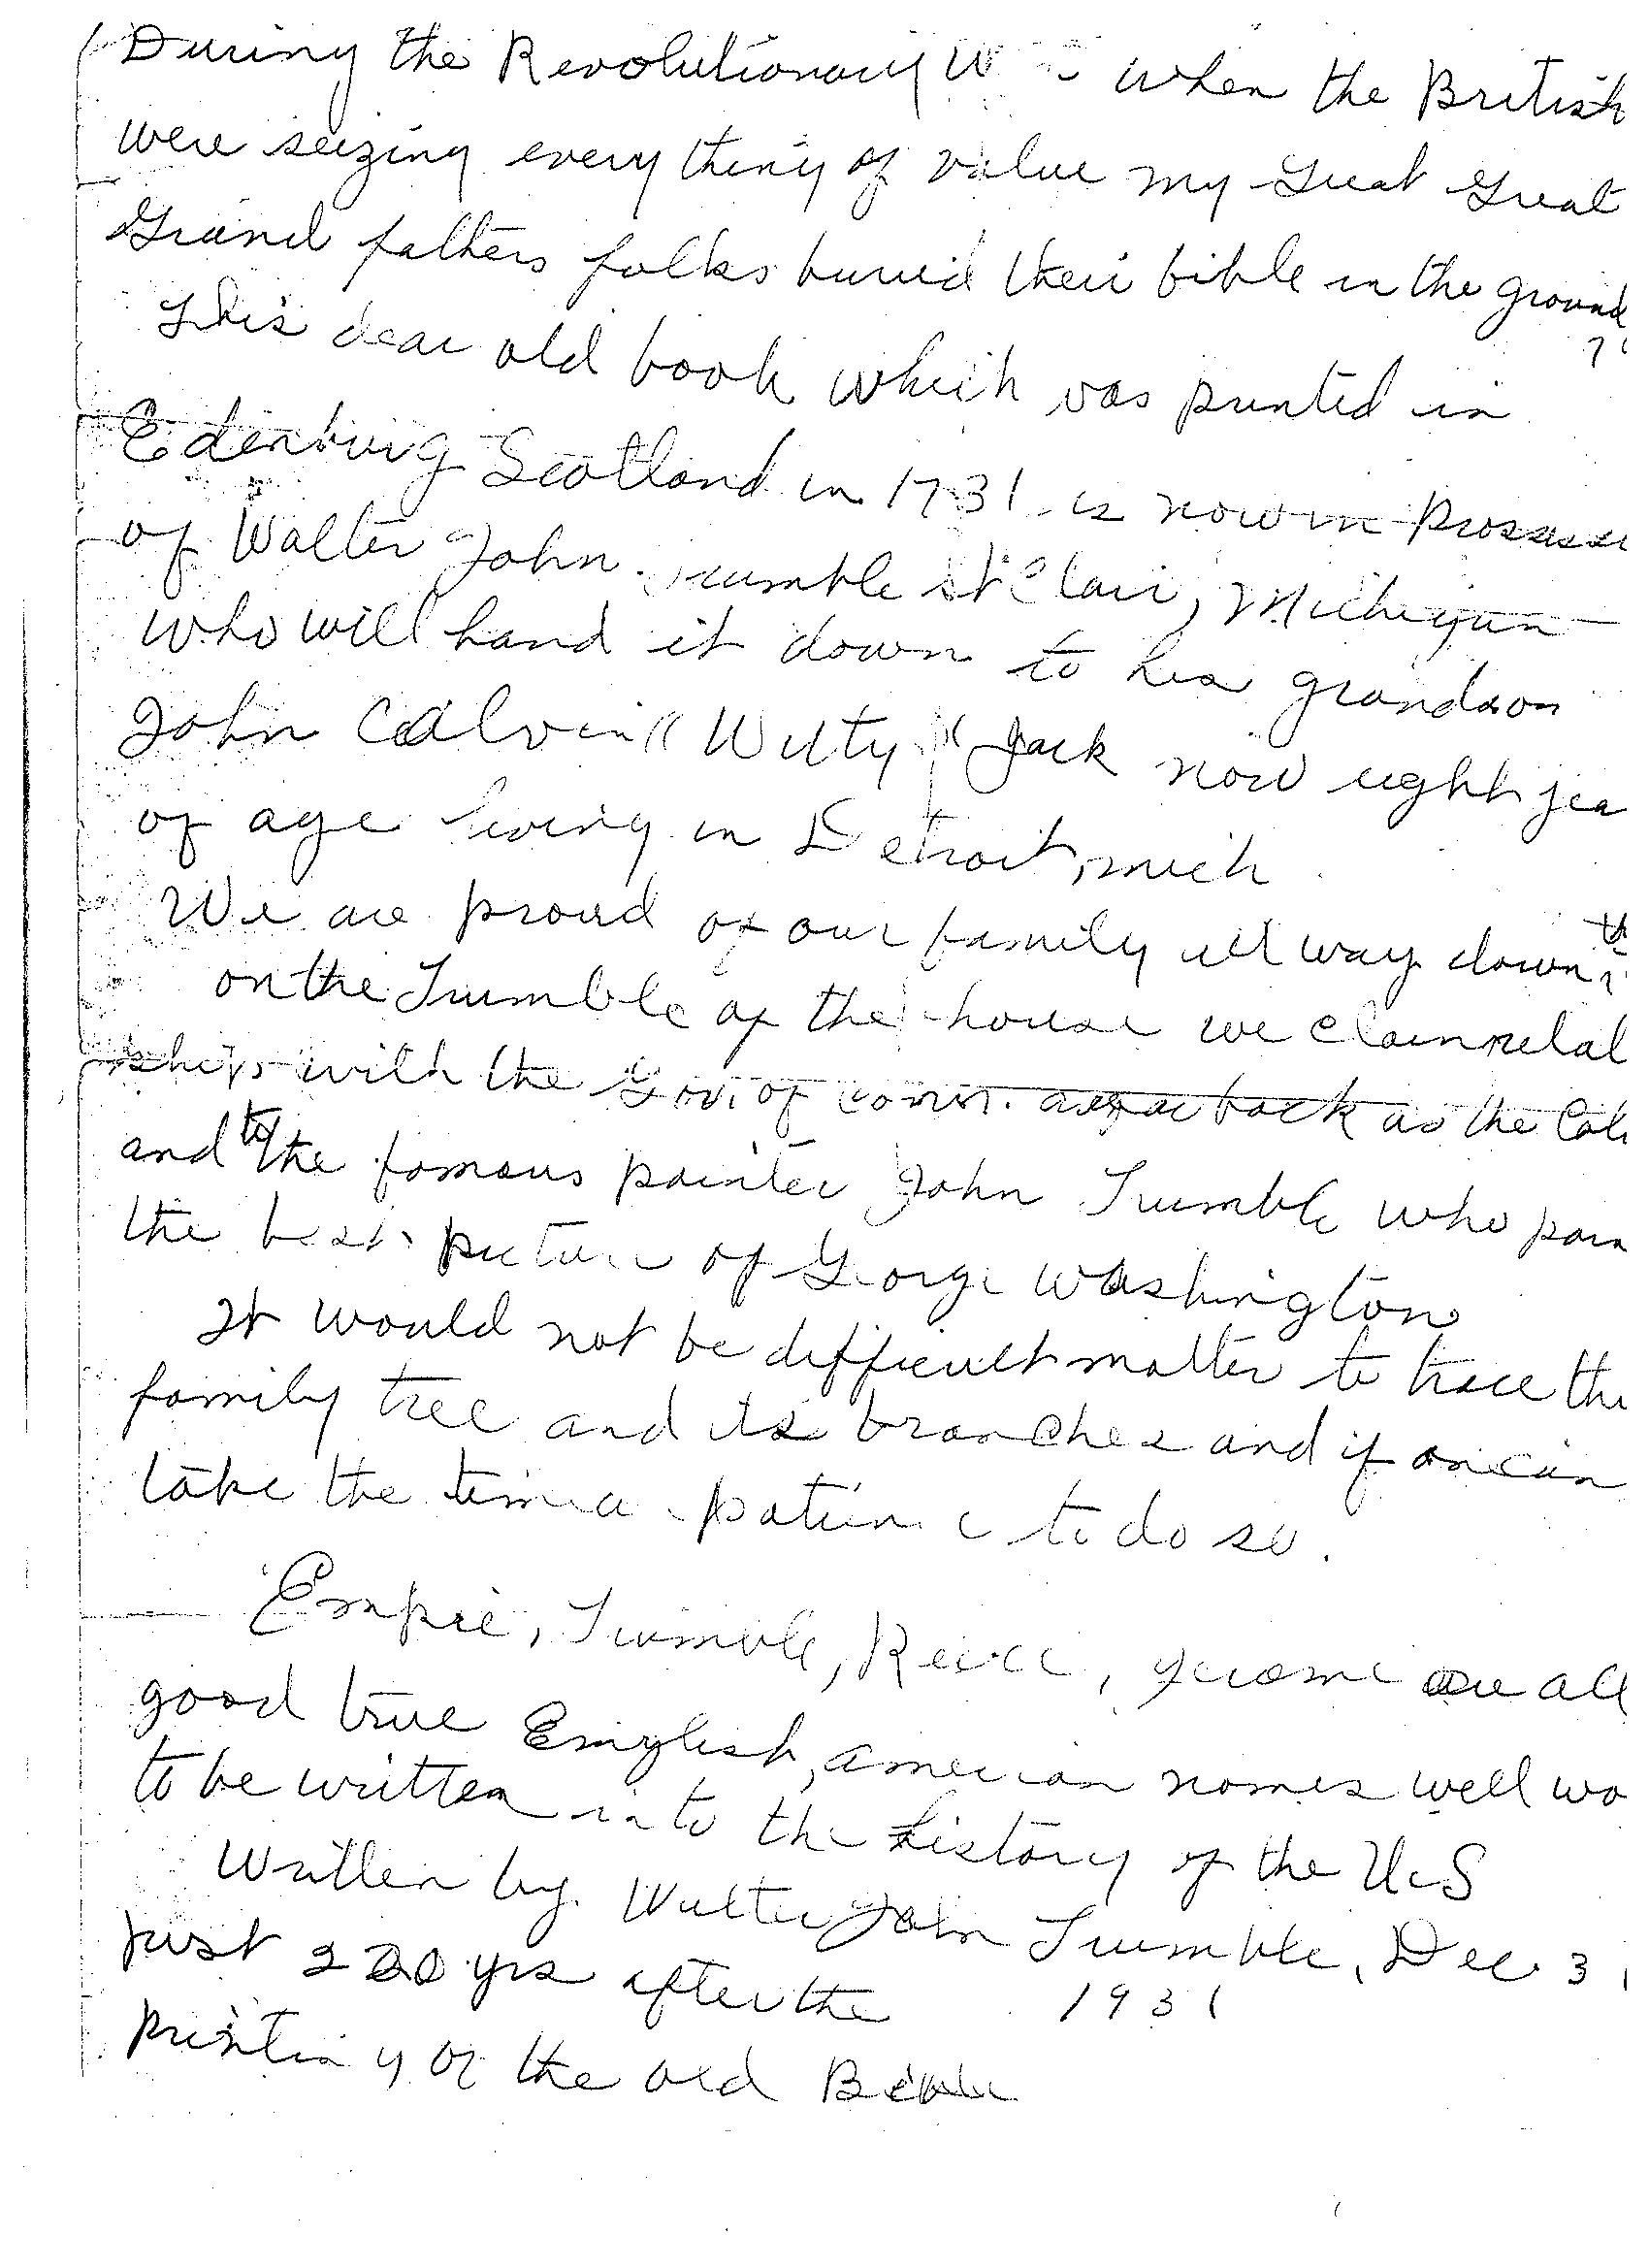 During the Revolutionary W when the British
were seizing everything of value my Great Great
Grand fathers folks buried their bible in the ground
This dear old book which was printed in
Edenburg Scotland in 1731 is now in
of Walter John rumble St Clair, Michigan
who will hand it down to his grandson
John Calvin "Witty" Jack now eight yea
of age living in Detroit, Mich
We are proud of our family all way down
on the Trumble of the house we claim relat
ship with the Gov. of Conn. back as the Col
and to the famous painter John Trumble who pain
the best picture of George Washington
It would not be difficult matter to trace the
family tree and its branches and if one can
take the time patience to do so.
Empie, Trumble, Reece, Jerome are all
good true English, American names well wo
to be written into the history of the U.S
Written by Walter John Trumble, Dec 31
just 200 yrs after the 1931
printing of the old Bible